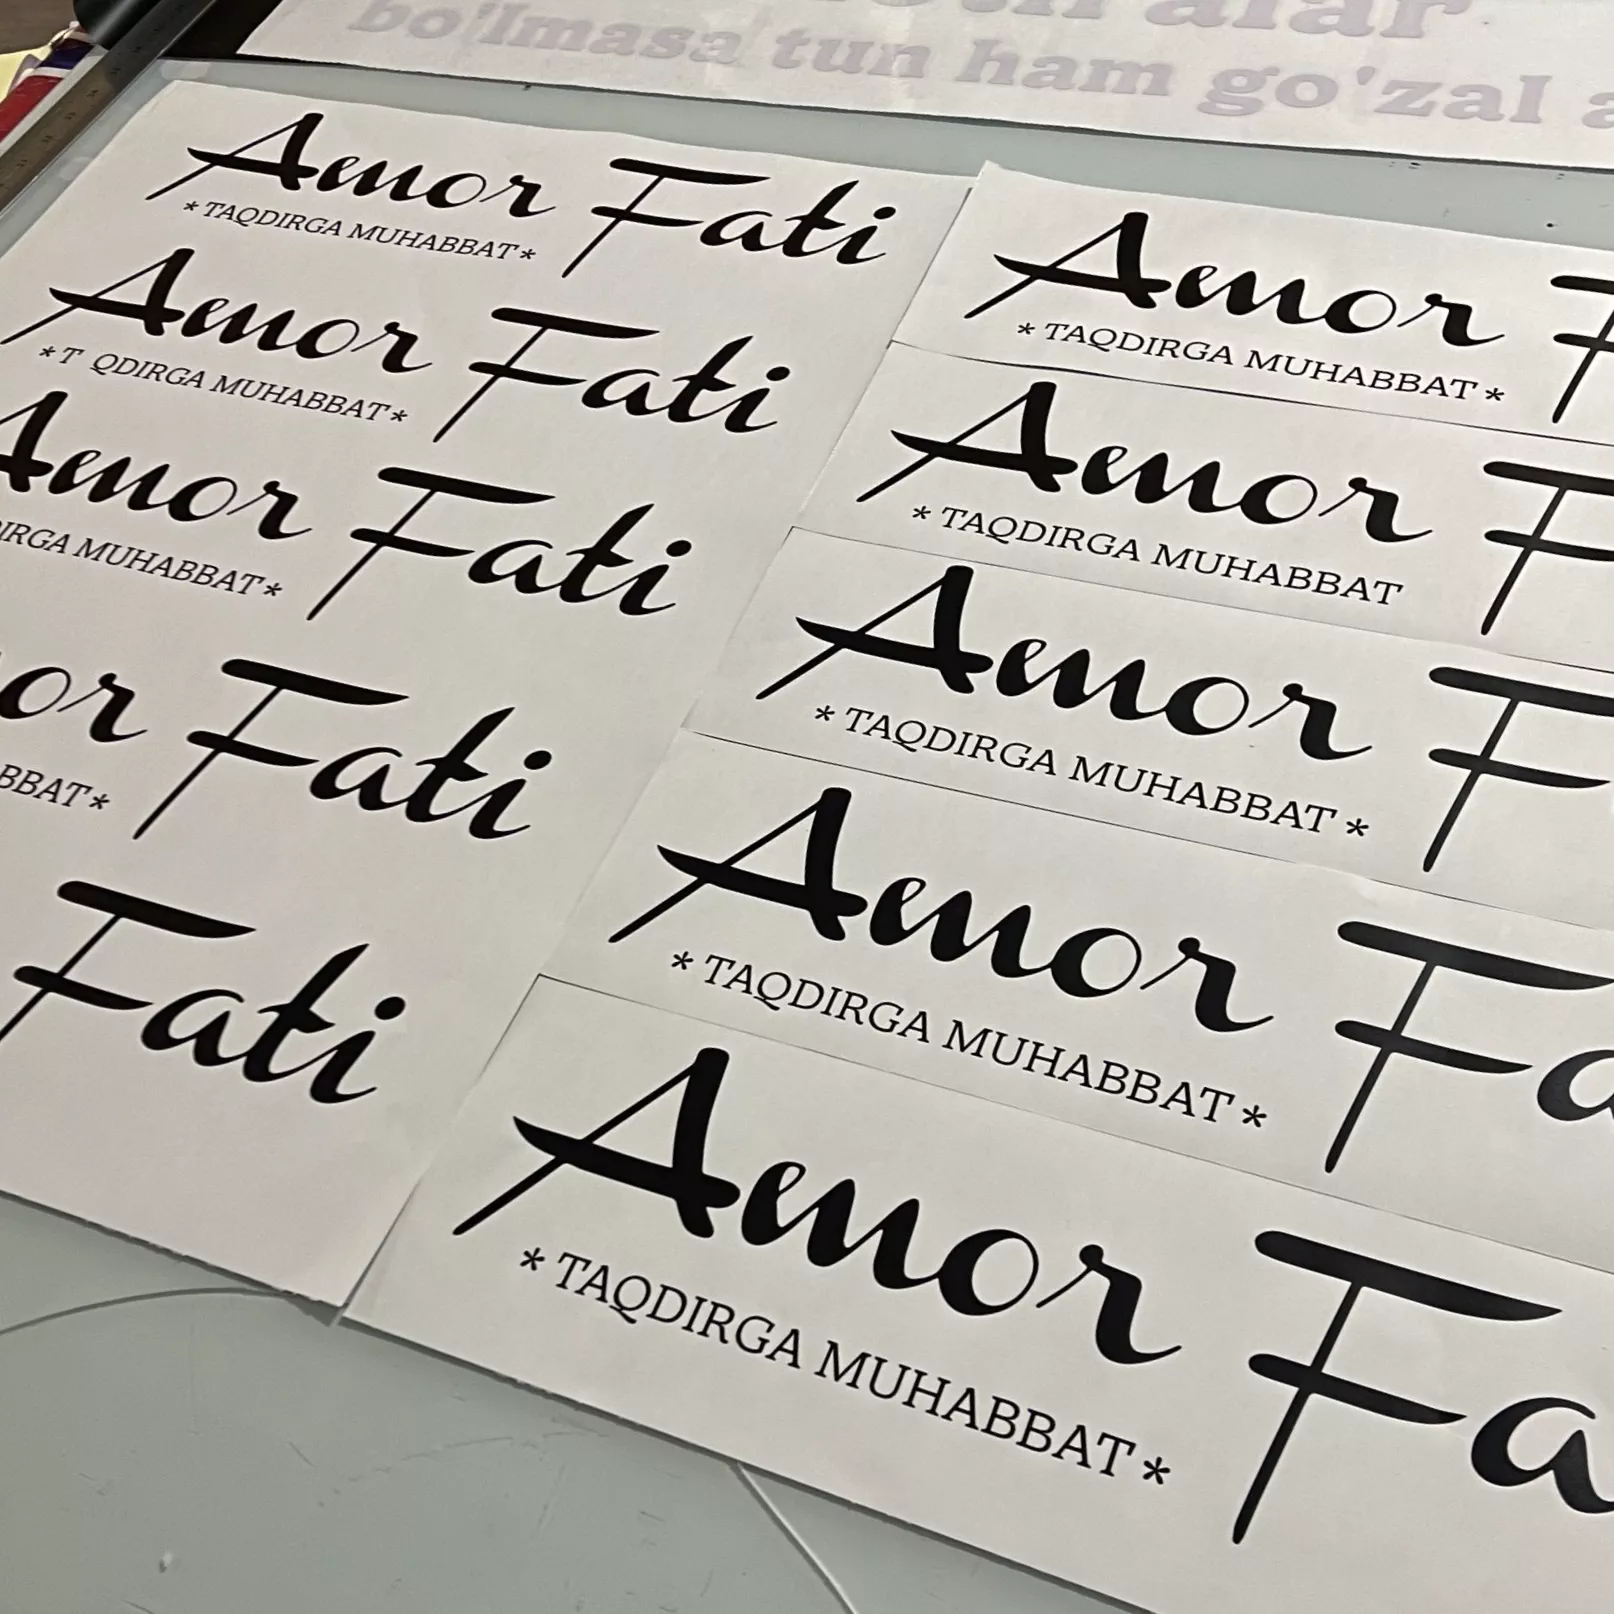 bo'lmasa tun ham go'zal
Amor Fati
* TAQDIRGA MUHABBAT *
Amor Fati
* T QDIRGA MUHABBAT *
Amor Fati
MUHABBAT *
Fati
Fati
Amor
* TAQDIRGA MUHABBAT *
Amor
* TAQDIRGA MUHABBAT
Amor
* TAQDIRGA MUHABBAT *
Amor
* TAQDIRGA MUHABBAT *
Amor
* TAQDIRGA MUHABBAT *